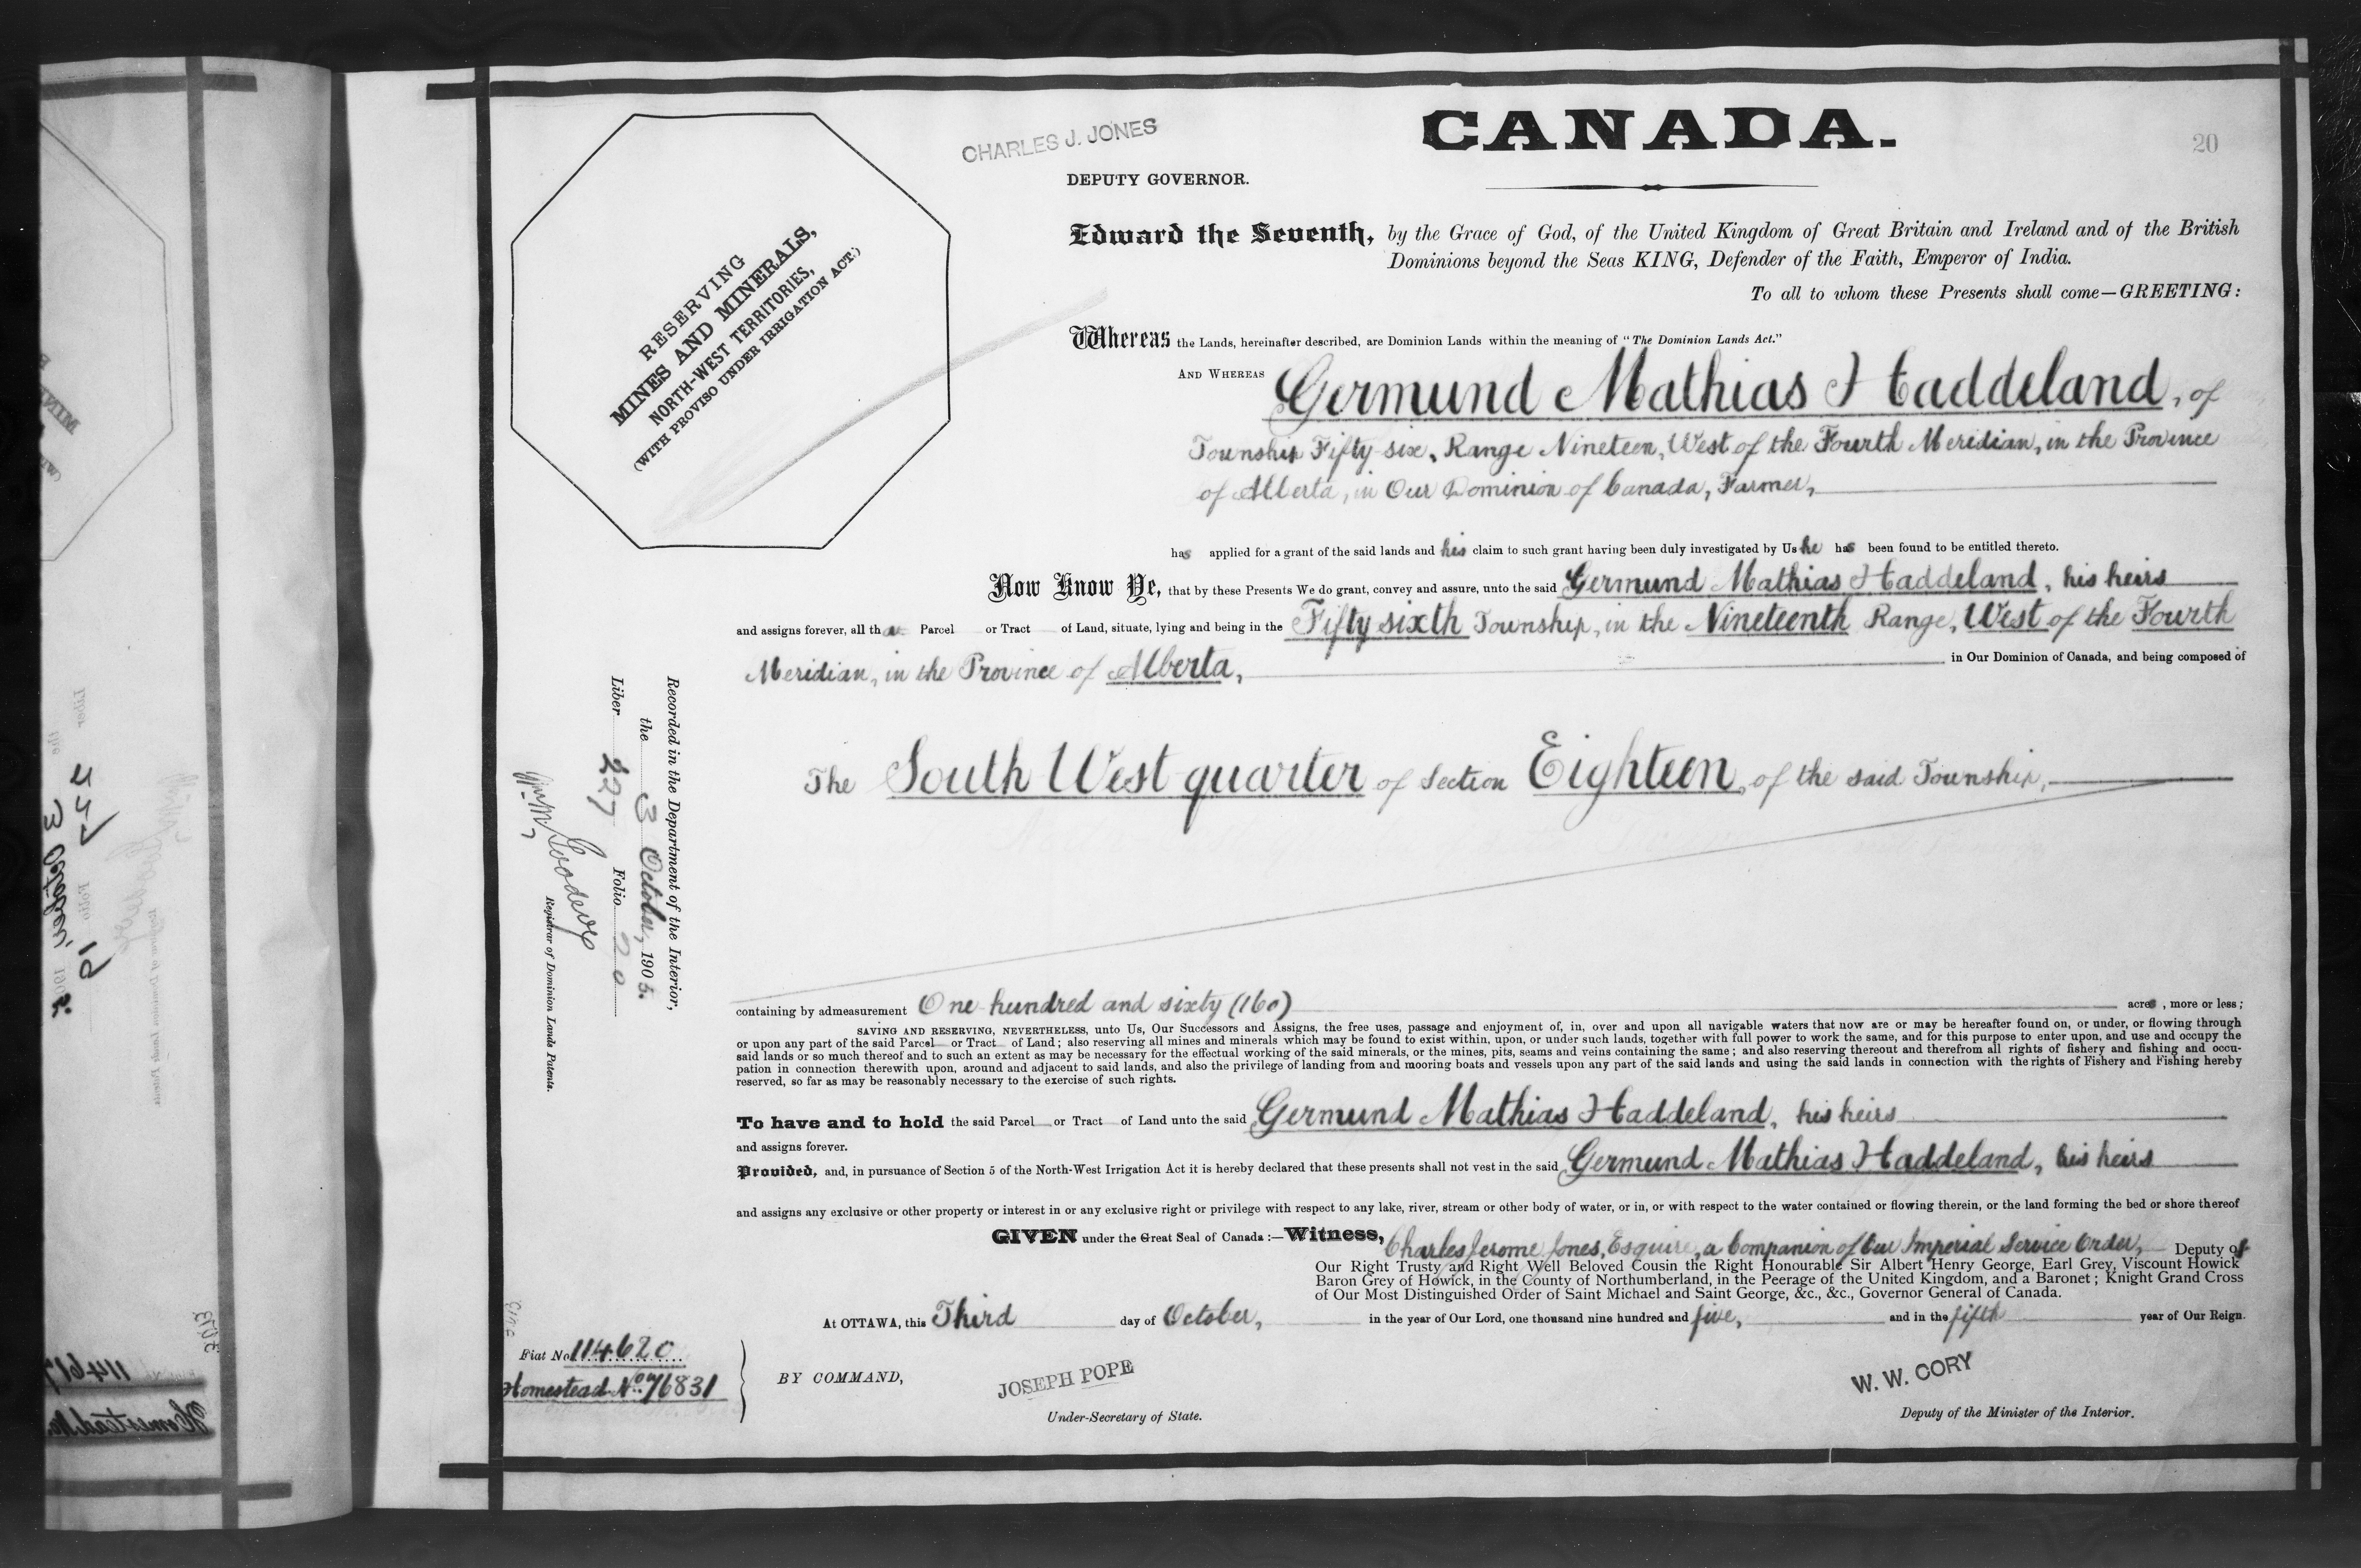 CANADA.
20
CHARLES J. JONES
DEPUTY GOVERNOR.
RESERVING
MINES AND MINERALS,
NORTH-WEST TERRITORIES,
(WITH PROVISO UNDER IRRIGATION ACT.)
Edward the Seventh, by the Grace of God, of the United Kingdom of Great Britain and Ireland and of the British
Dominions beyond the Seas KING, Defender of the Faith, Emperor of India.
To all to whom these Presents shall come—GREETING:
Whereas the Lands, hereinafter described, are Dominion Lands within the meaning of "The Dominion Lands Act."
AND WHEREAS Germund Mathias Haddeland, of
Township Fifty-six, Range Nineteen, West of the Fourth Meridian, in the Province
of Alberta, in Our Dominion of Canada, Farmer,
has applied for a grant of the said lands and his claim to such grant having been duly investigated by Us he has been found to be entitled thereto.
Now Know Ye, that by these Presents We do grant, convey and assure, unto the said Germund Mathias Haddeland, his heirs
and assigns forever, all that Parcel or Tract of Land, situate, lying and being in the Fifty sixth Township, in the Nineteenth Range, West of the Fourth
Meridian, in the Province of Alberta, in Our Dominion of Canada, and being composed of
The South West quarter of Section Eighteen, of the said Township,
containing by admeasurement One hundred and sixty (160) acres, more or less;
SAVING AND RESERVING, NEVERTHELESS, unto Us, Our Successors and Assigns, the free uses, passage and enjoyment of, in, over and upon all navigable waters that now are or may be hereafter found on, or under, or flowing through
or upon any part of the said Parcel or Tract of Land; also reserving all mines and minerals which may be found to exist within, upon, or under such lands, together with full power to work the same, and for this purpose to enter upon, and use and occupy the
said lands or so much thereof and to such an extent as may be necessary for the effectual working of the said minerals, or the mines, pits, seams and veins containing the same; and also reserving thereout and therefrom all rights of fishery and fishing and occu-
pation in connection therewith upon, around and adjacent to said lands, and also the privilege of landing from and mooring boats and vessels upon any part of the said lands and using the said lands in connection with the rights of Fishery and Fishing hereby
reserved, so far as may be reasonably necessary to the exercise of such rights.
To have and to hold the said Parcel or Tract of Land unto the said Germund Mathias Haddeland, his heirs
and assigns forever.
Provided, and, in pursuance of Section 5 of the North-West Irrigation Act it is hereby declared that these presents shall not vest in the said Germund Mathias Haddeland, his heirs
and assigns any exclusive or other property or interest in or any exclusive right or privilege with respect to any lake, river, stream or other body of water, or in, or with respect to the water contained or flowing therein, or the land forming the bed or shore thereof
GIVEN under the Great Seal of Canada:—Witness, Charles Jerome Jones, Esquire, a Companion of Our Imperial Service Order, Deputy of
Our Right Trusty and Right Well Beloved Cousin the Right Honourable Sir Albert Henry George, Earl Grey, Viscount Howick
Baron Grey of Howick, in the County of Northumberland, in the Peerage of the United Kingdom, and a Baronet; Knight Grand Cross
of Our Most Distinguished Order of Saint Michael and Saint George, &c., &c., Governor General of Canada.
At OTTAWA, this Third day of October, in the year of Our Lord, one thousand nine hundred and five, and in the fifth year of Our Reign.
BY COMMAND,
JOSEPH POPE
Under-Secretary of State.
W. W. CORY
Deputy of the Minister of the Interior.
Recorded in the Department of the Interior,
the 3 October, 1905.
Liber 227 Folio 20
Registrar of Dominion Lands Patents.
Fiat No 114620
Homestead No. 76831